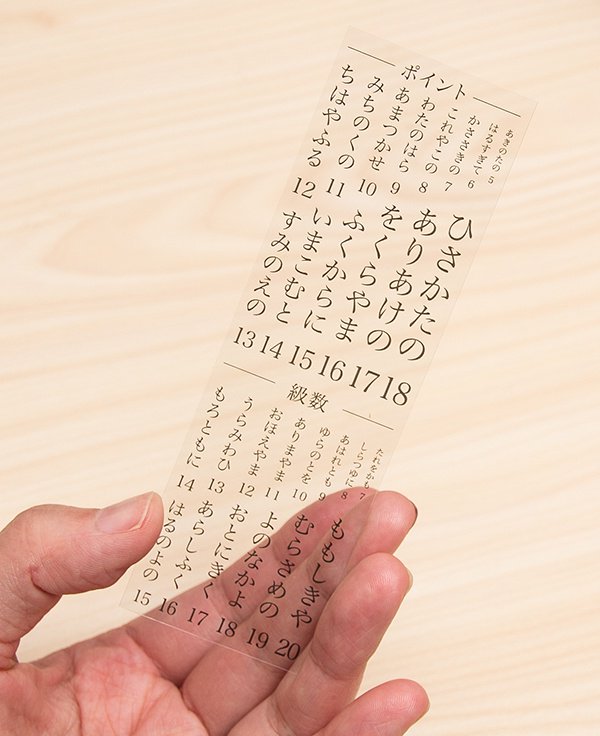 ポイント
あきのたの 5
はるすきて 6
かささきの 7
これやこの 8
わたのはら 9
あまつかせ 10
みちのくの 11
ちはやふる 12
ひさかたの 18
ありあけの 17
をくらやま 16
ふくからに 15
いまこむと 14
すみのえの 13
級数
たれをかも 7
しらつゆに 8
あはれとも 9
ゆらのとを 10
ありまやま 11
おほえやま 12
うらみわひ 13
もろともに 14
ももしきや 20
むらさめの 19
よのなかよ 18
おとにきく 17
あらしふく 16
はるのよの 15